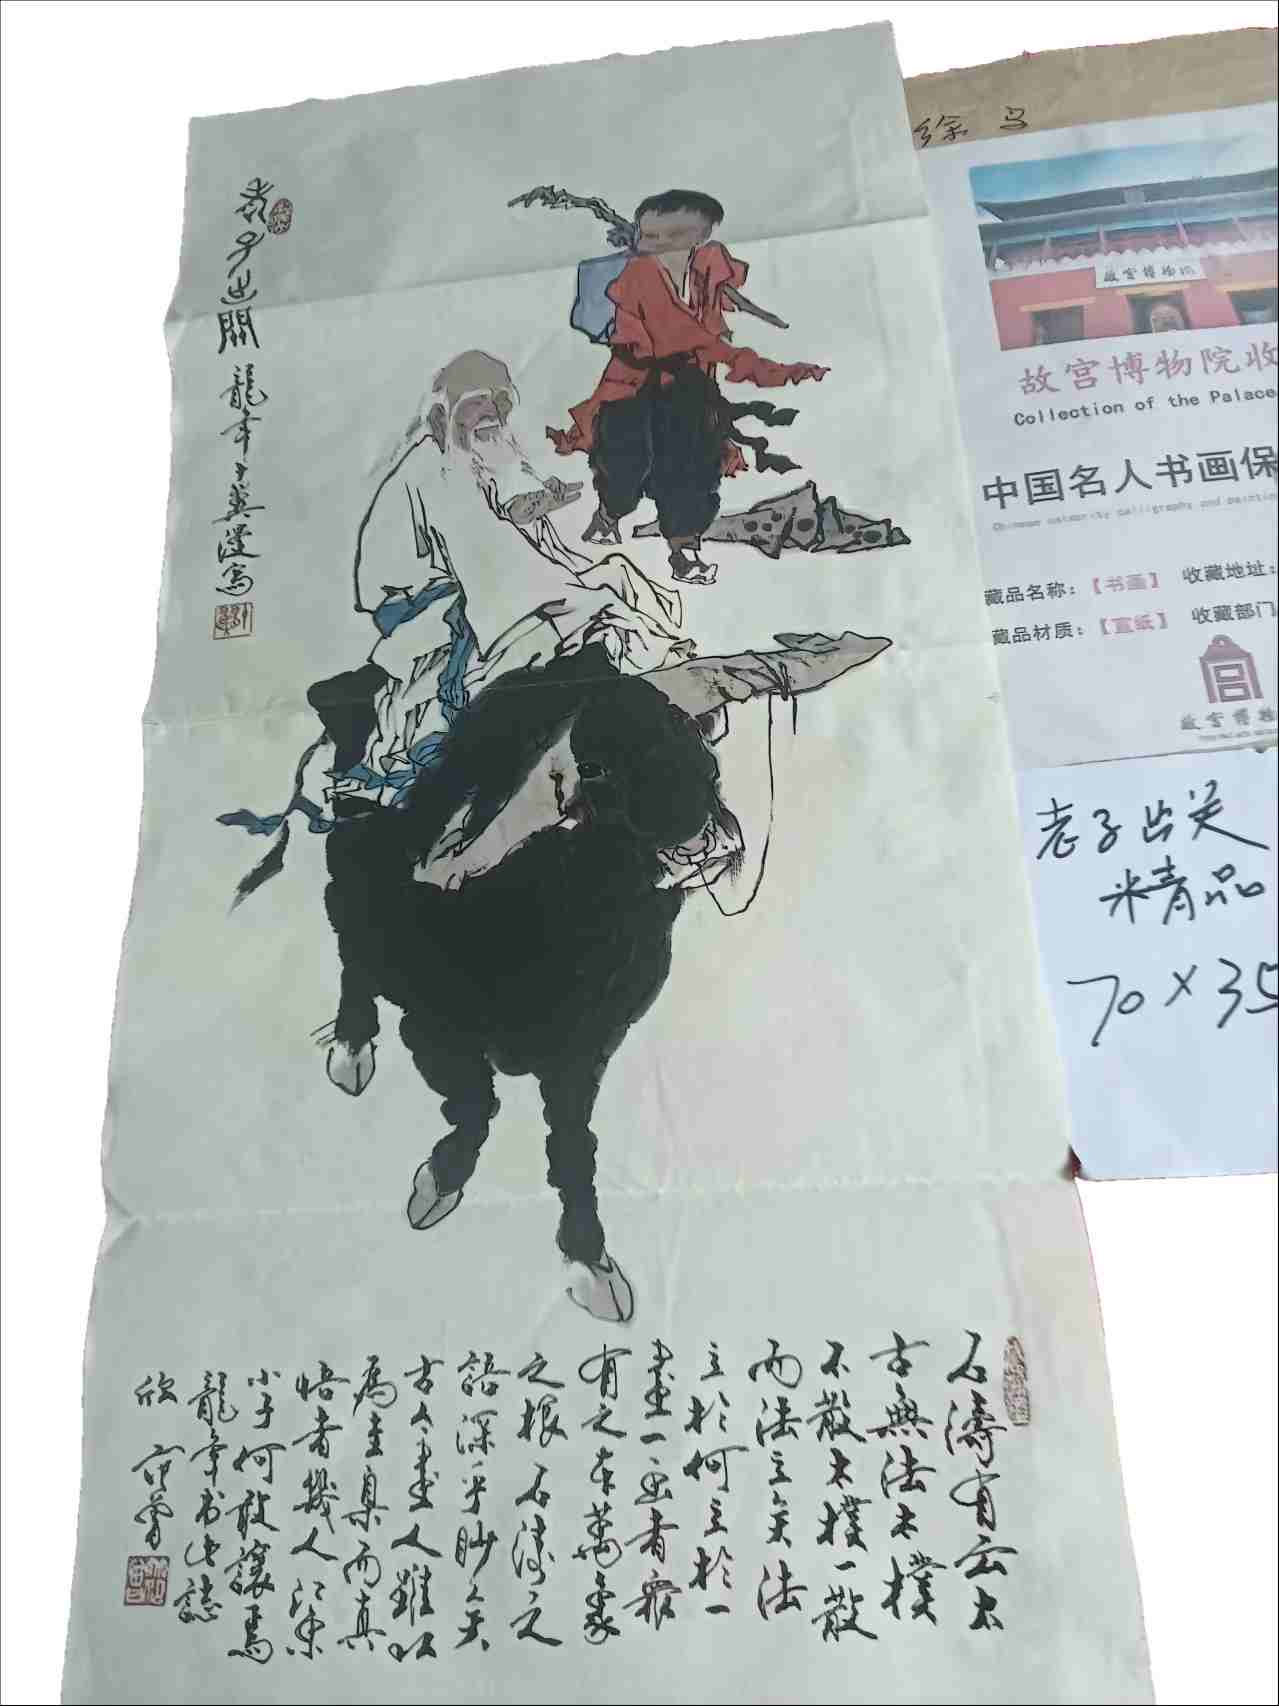 老子出關
龍年十翼漢寫
石濤有云太
古無法太樸
不散太樸一散
而法立矣法
立於何立於一
畫一畫者衆
有之本萬象
之根石濤之
語深乎妙矣
古今畫人雖以
為圭臬而真
悟者幾人江東
小子何敢讓焉
龍年書此誌
欣 范曾
徐
故宫博物院
故宫博物院收
Collection of the Palace
中国名人书画保
Chinese celebrity calligraphy and painting
藏品名称：【书画】 收藏地址：
藏品材质：【宣纸】 收藏部门
故宫博物
老子出关
精品
70×35